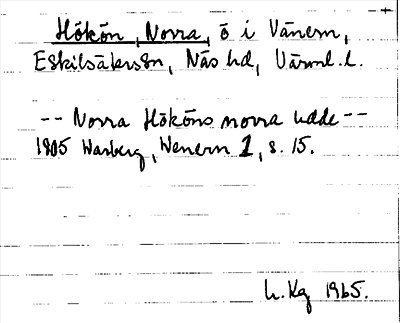 Hökön, Norra, ö i Vänern,
Eskilsäters sn, Näs hd, Värml. l.
-- Norra Hököns norra udde --
1805 Warberg, Wenern 1, s. 15.
L. Kg 1965.